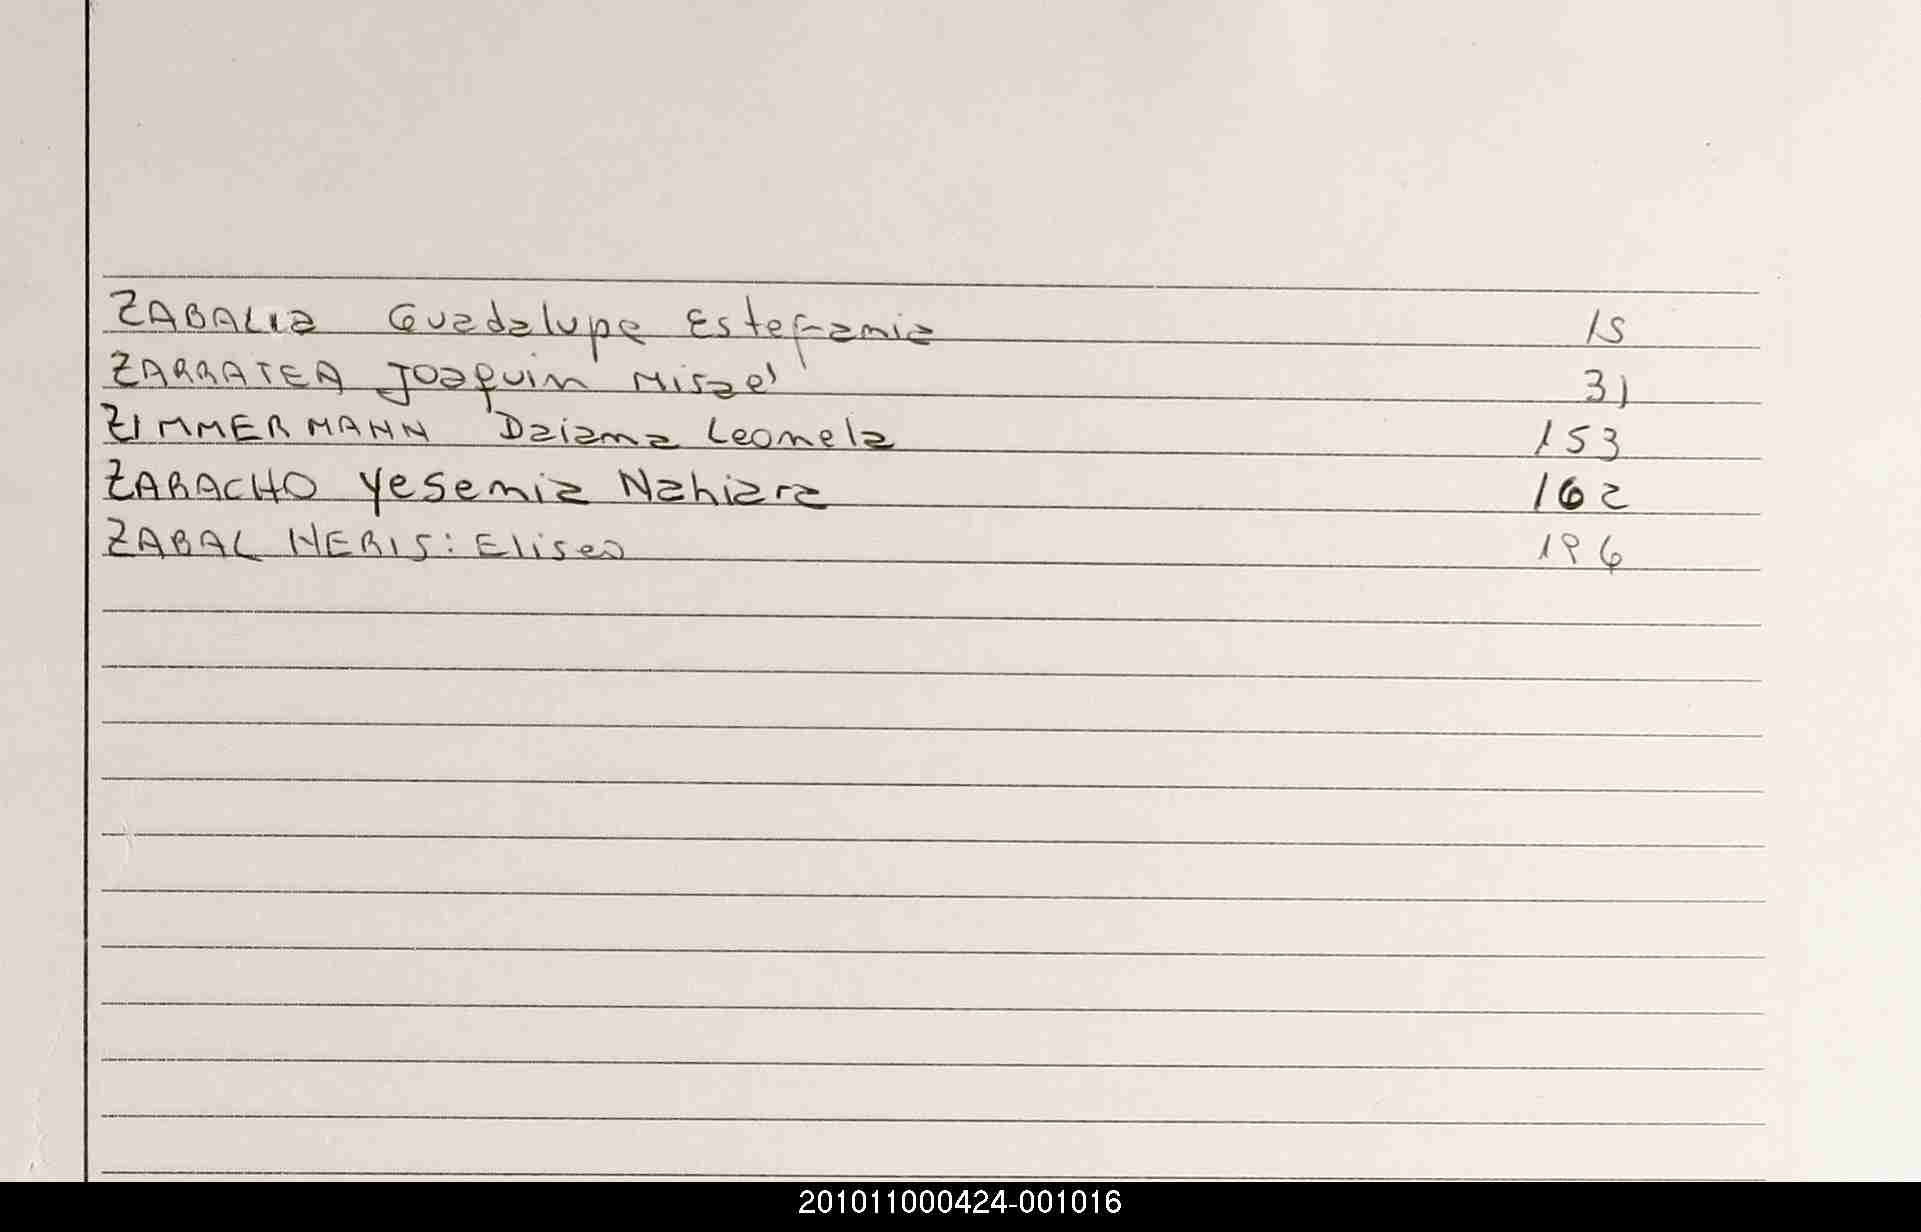 ZABALIa Guadalupe Estefania 15
ZARRATEA Joaquin Misael 31
ZIMMERMANN Daiana Leonela 153
ZARACHO Yesemia Nahiara 162
ZABAL NERIS: Eliseo 196
201011000424-001016